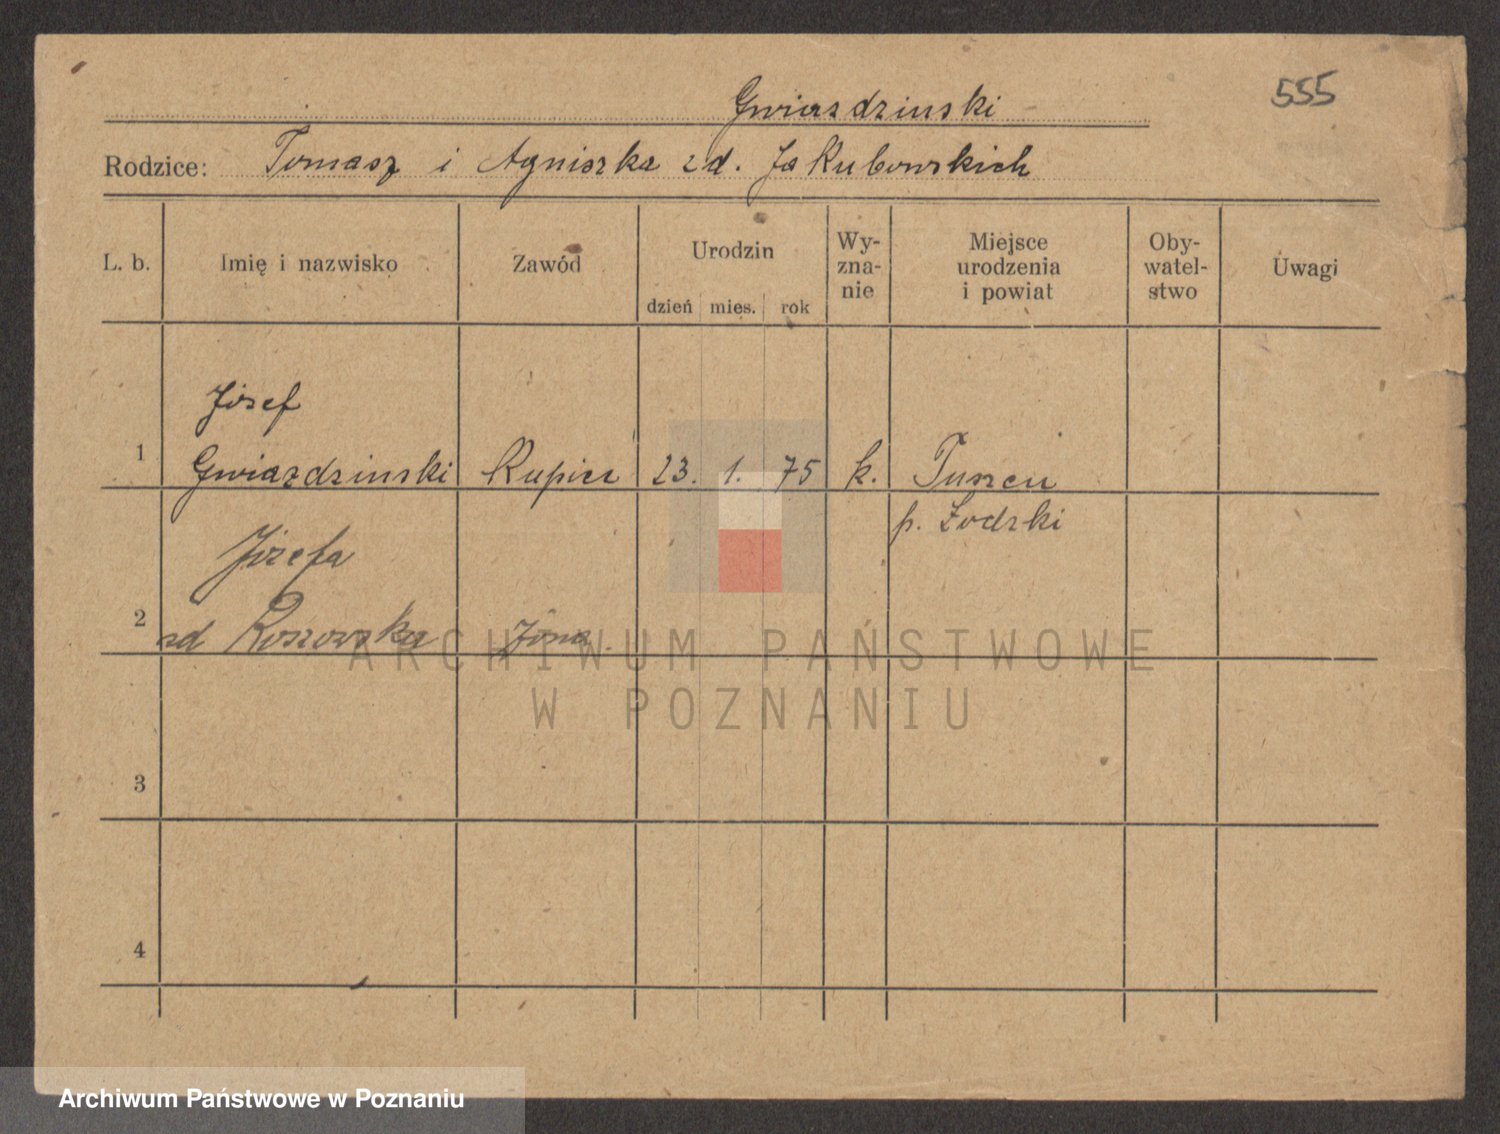 555
Gwiazdzinski
Rodzice: Tomasz i Agniszka zd. Jakubowskich
L. b. Imię i nazwisko Zawód Urodzin dzień mies. rok Wy-
zna-
nie Miejsce
urodzenia
i powiat Oby-
watel-
stwo Uwagi
Józef
1 Gwiazdzinski Kupiec 23. 1. 75 k. Tuszcu
p. Łodzki
Józefa
2 zd Roszowska Żona.
3
4
ARCHIWUM PAŃSTWOWE
W POZNANIU
Archiwum Państwowe w Poznaniu